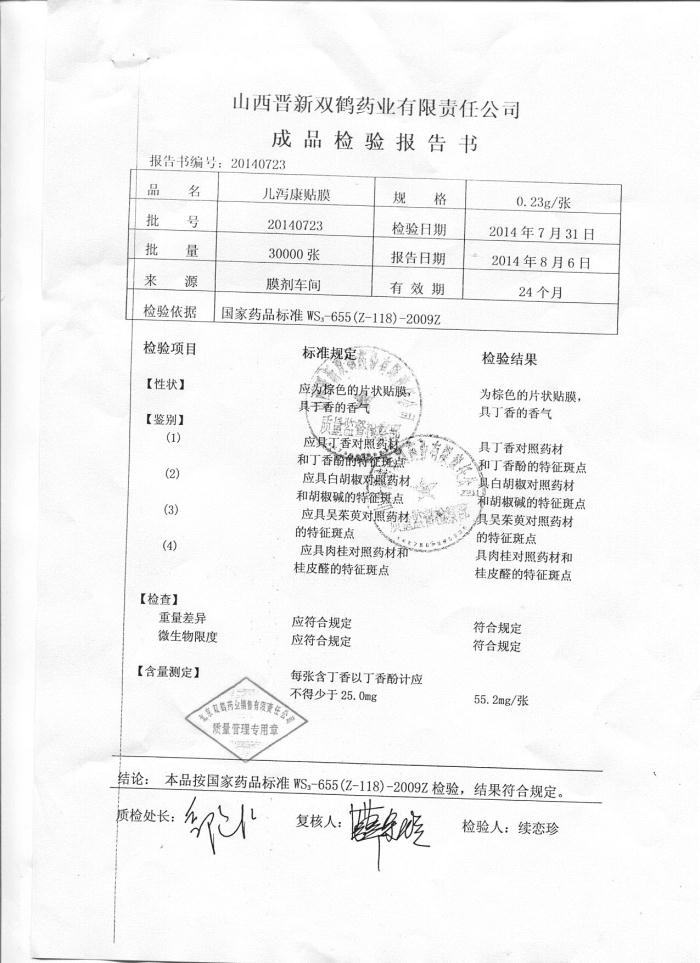 山西晋新双鹤药业有限责任公司
成品检验报告书
报告书编号：20140723
品名 儿泻康贴膜 规格 0.23g/张
批号 20140723 检验日期 2014年7月31日
批量 30000张 报告日期 2014年8月6日
来源 膜剂车间 有效期 24个月
检验依据 国家药品标准WS₃-655(Z-118)-2009Z
检验项目 标准规定 检验结果
【性状】 应为棕色的片状贴膜， 为棕色的片状贴膜，
具丁香的香气 具丁香的香气
【鉴别】
(1) 应具丁香对照药材 具丁香对照药材
和丁香酚的特征斑点 和丁香酚的特征斑点
(2) 应具白胡椒对照药材 具白胡椒对照药材
和胡椒碱的特征斑点 和胡椒碱的特征斑点
(3) 应具吴茱萸对照药材 具吴茱萸对照药材
的特征斑点 的特征斑点
(4) 应具肉桂对照药材和 具肉桂对照药材和
桂皮醛的特征斑点 桂皮醛的特征斑点
【检查】
重量差异 应符合规定 符合规定
微生物限度 应符合规定 符合规定
【含量测定】 每张含丁香以丁香酚计应
不得少于25.0mg 55.2mg/张
北京双鹤药业销售有限责任公司
质量管理专用章
结论： 本品按国家药品标准WS₃-655(Z-118)-2009Z检验，结果符合规定。
质检处长： 复核人： 检验人：续恋珍